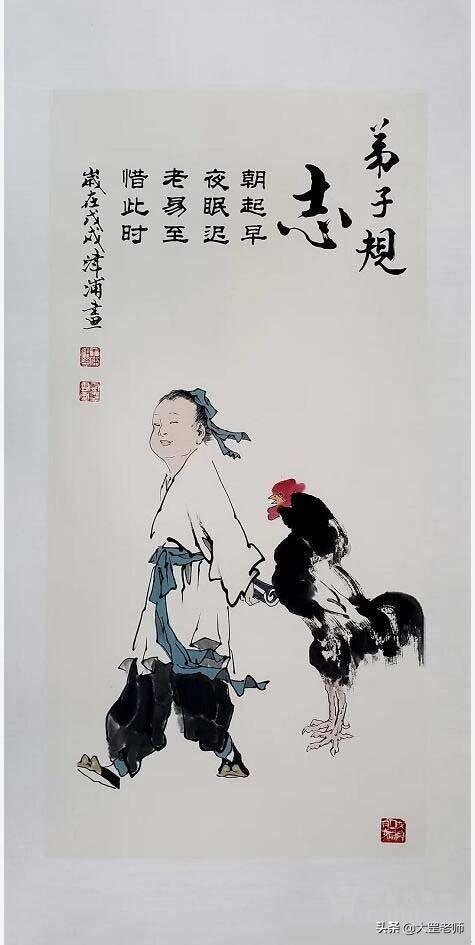 弟子規
志
朝起早
夜眠迟
老易至
惜此时
歲在戊戌津浦畫
头条 @大罡老师